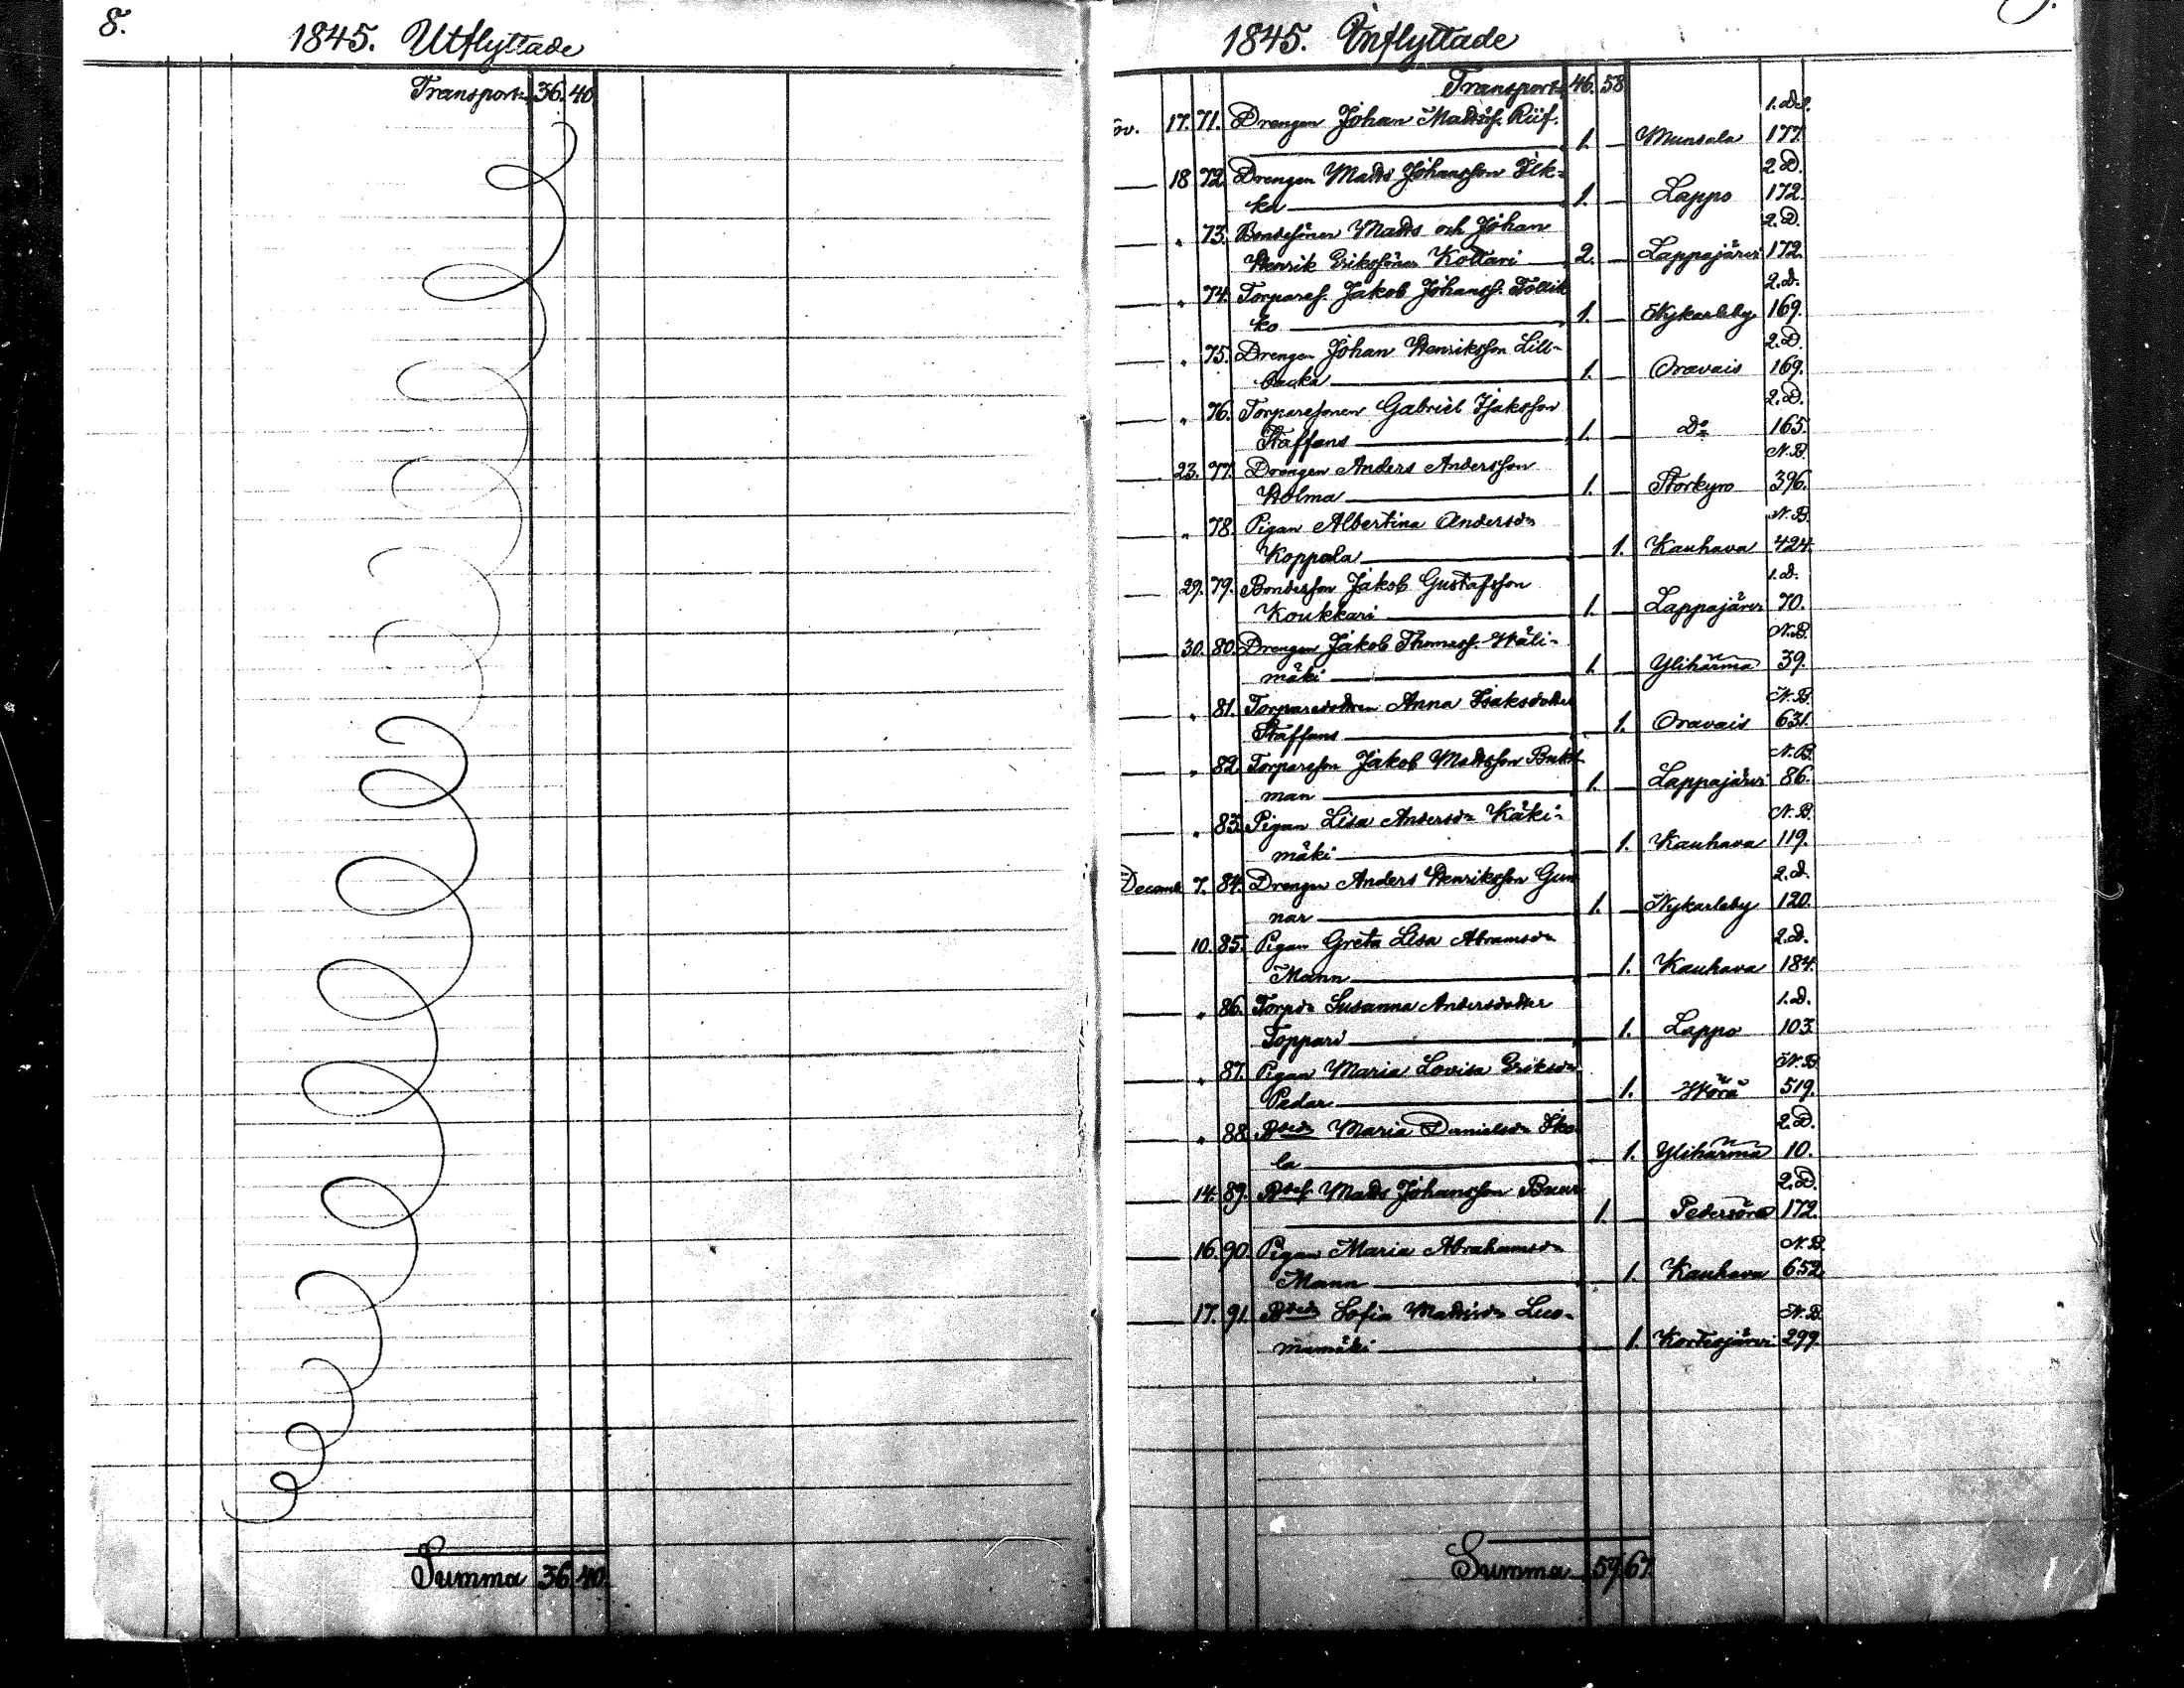 8.
1845. Utflyttade
Transport 36. 40
Summa 36. 40.
1845. Inflyttade
Transport 46. 58
1. D.
ov. 17. 71. Drengen Johan Madtss. Riif. 1. — Munsala 177.
2. D.
— 18 72. Drengen Madts Johansson Ilk-
ka — 1. — Lappo 172.
2. D.
— " 73. Bondesöner Madts och Johan
Henrik Erikssöner Kottari — 2. — Lappajärvi 172.
2. D.
— " 74. Torpares. Jakob Johanss.
ko — 1. — Nykarleby 169.
2. D.
— " 75. Drengen Johan Henriksson Lill-
backa — 1. — Oravais 169.
2. D.
— " 76. Torparesonen Gabriel Isaksson
Staffans — 1. — Do 165.
N. B.
— 23. 77. Drengen Anders Andersson
Holma — 1. — Storkyro 396.
N. B.
— " 78. Pigan Albertina Andersdr
Koppala — 1. Kauhava 424.
1. D.
— 29. 79. Bondesson Jakob Gustafsson
Koukkari — 1. — Lappajärvi 70.
N. B.
— 30. 80. Drengen Jakob Thomass. Wäli-
mäki — 1. — Ylihärmä 39.
N. B.
— " 81. Torparedottren Anna Isaksdotter
Staffans — 1. Oravais 631.
N. B.
— " 82. Torpareson Jakob Madtsson
man — 1. — Lappajärvi 86.
N. B.
— " 83. Pigan Lisa Andersdr Käki-
mäki — 1. Kauhava 119.
2. D.
Decemb 7. 84. Drengen Anders Henriksson Gun
nar — 1. — Nykarleby 120.
2. D.
— 10. 85. Pigan Greta Lisa Abramsdr
Mann — 1. Kauhava 184.
1. D.
— " 86. Torpdr Susanna Andersdotter
Toppari — 1. Lappo 103.
N. B.
— " 87. Pigan Maria Lovisa Eriksdr
Pedar — 1. Wörå 519.
2. D.
— " 88. Bdedr Maria Danielsdr Sko
la — 1. Ylihärmä 10.
2. D.
— 14. 89. Bdes. Madts Johansson
— 1. — Pedersöre 172.
N. B.
— 16. 90. Pigan Maria Abrahamsdr
Mann — 1. Kauhava 652.
N. B.
— 17. 91. Bdedr Sofia Madtsdr Luo-
mamäki — 1. Kortesjärvi 299.
Summa 57. 67.